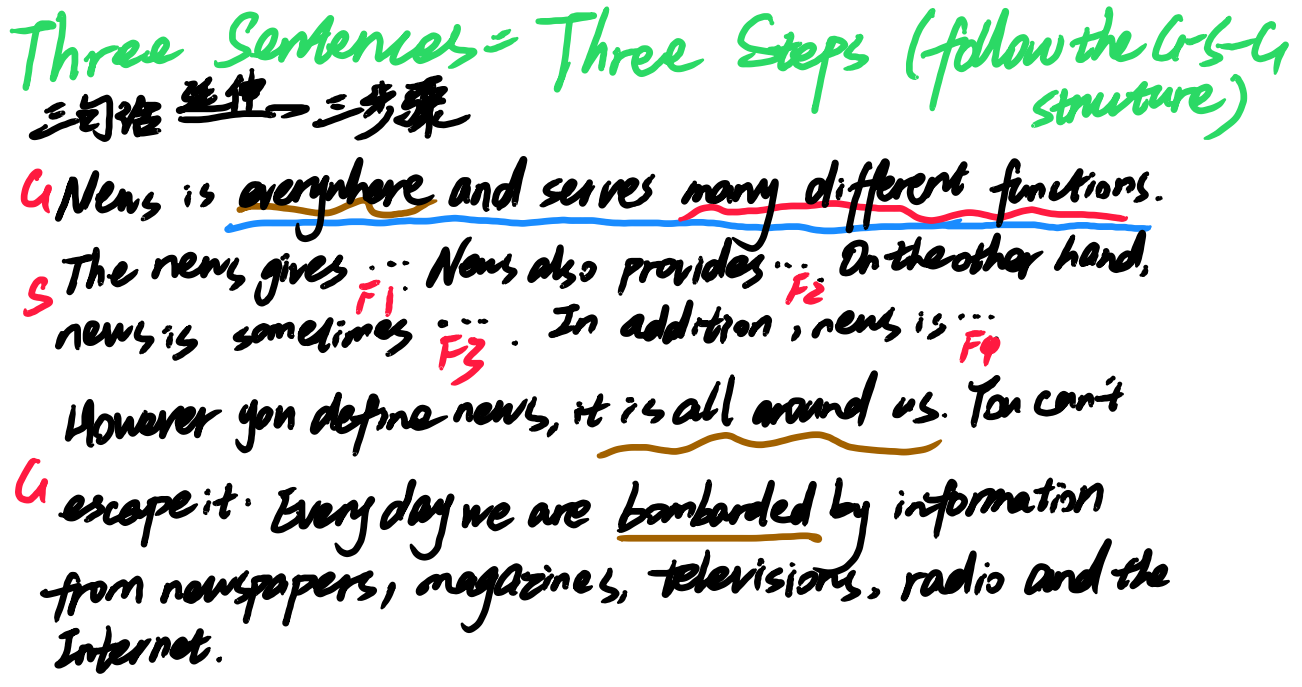 Three Sentences = Three Steps (follow the G-S-G
structure)
三句话 延伸 三步骤
G News is everywhere and serves many different functions.
S The news gives ... News also provides ... On the other hand,
F1 F2
news is sometimes .... In addition, news is ...
F3 F4
However you define news, it is all around us. You can't
G escape it. Every day we are bombarded by information
from newspapers, magazines, televisions, radio and the
Internet.